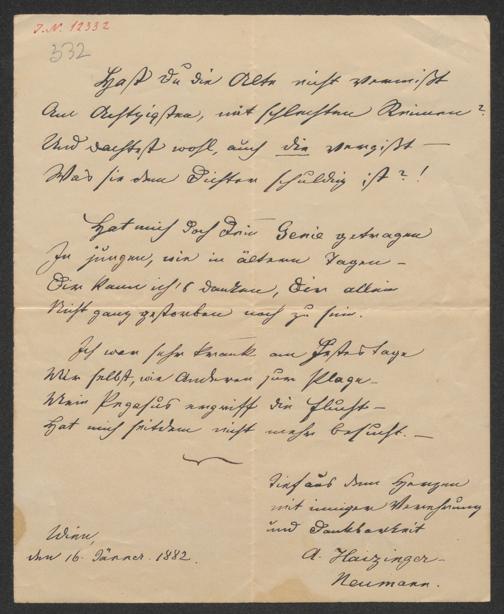 J.N. 12332
332
Hast Du die Alte nicht vermißt
Am Achtzigsten, mit schlechten Reimen?
Und dachtest wohl, auch die vergißt —
Was sie dem Dichter schuldig ist?!
Hat mich doch Dein Genie getragen
In jungen, wie in ältern Tagen –
Dir kann ich's danken, Dir allein
Nicht ganz gestorben noch zu sein.
Ich war sehr krank am Festestage
Mir selbst, wie Anderen zur Plage –
Mein Pegasus ergriff die Flucht –
Hat mich seitdem nicht mehr besucht. –
Tief aus dem Herzen
mit inniger Verehrung
und Dankbarkeit
A. Haizinger-
Neumann.
Wien,
den 16. Jänner. 1882.